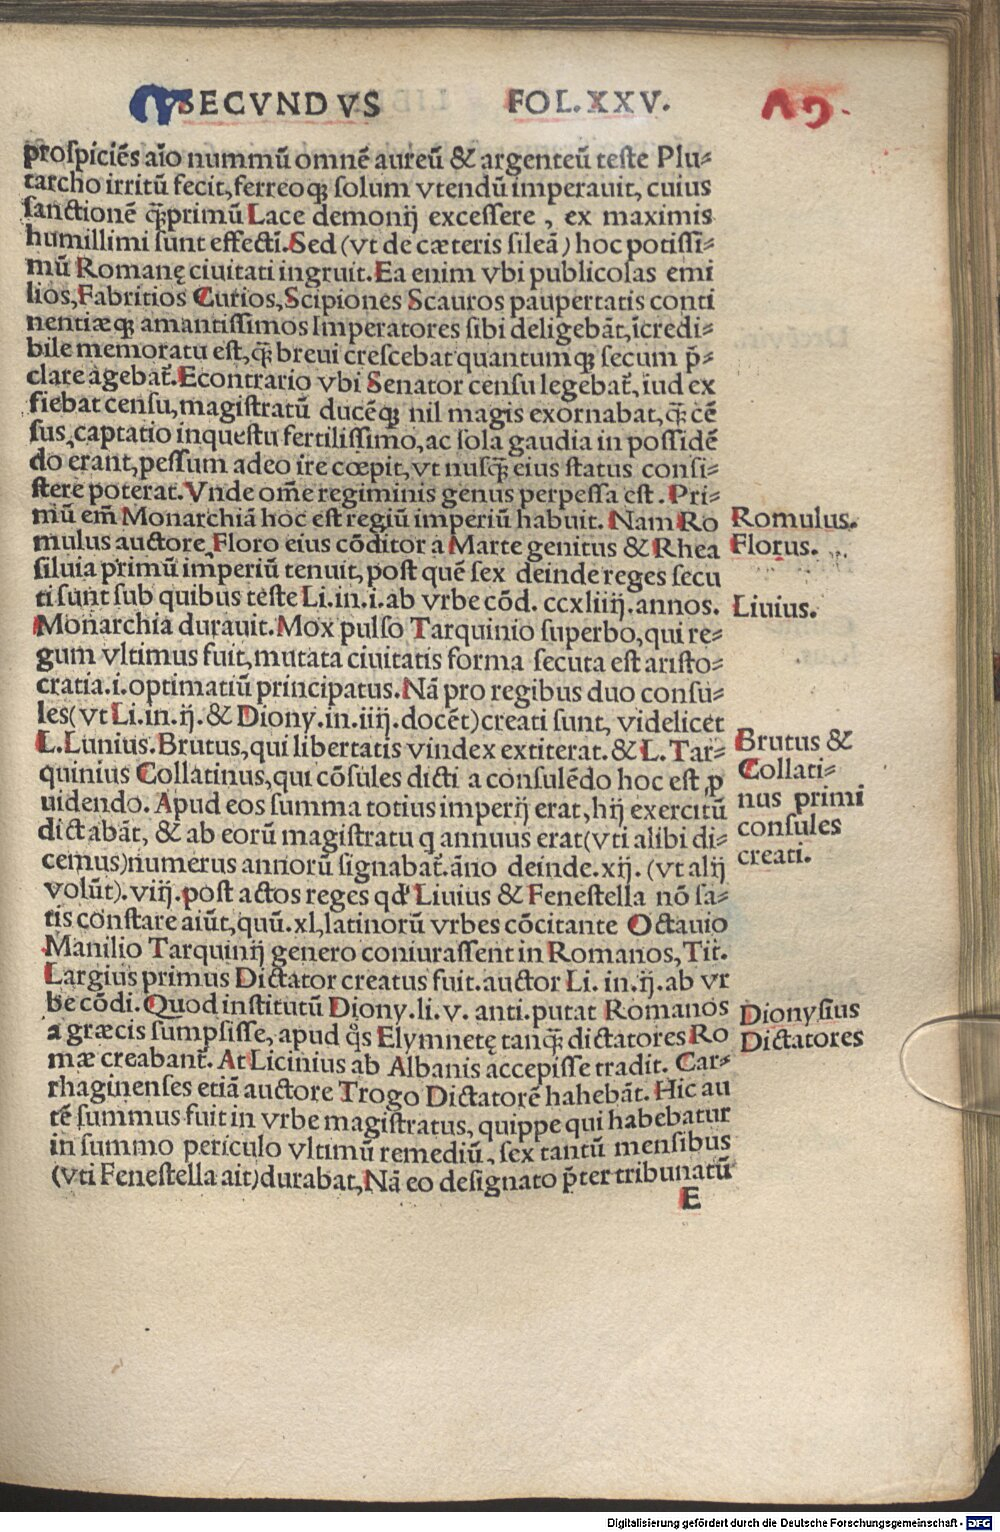 SECVNDVS FOL. XXV.
prospiciẽs aĩo nummũ omnẽ aureũ & argenteũ teste Plu⸗
tarcho irritũ fecit, ferreoqꝫ solum vtendũ imperauit, cuius
sanctionẽ q̃ꝫprimũ Lace demonij excessere, ex maximis
humillimi sunt effecti. Sed (vt de cæteris sileã) hoc potissi⸗
mũ Romanę ciuitati ingruit. Ea enim vbi publicolas emi
lios, Fabritios Curios, Scipiones Scauros paupertatis conti
nentiæqꝫ amantissimos Imperatores sibi deligebãt, ĩcredi⸗
bile memoratu est, q̃ꝫ breui crescebat quantumqꝫ secum p̃⸗
clare agebat᷑. Econtrario vbi Senator censu legebat᷑, iud ex
fiebat censu, magistratũ ducẽqꝫ nil magis exornabat, q̃ꝫ cẽ
sus, captatio inquestu fertilissimo, ac sola gaudia in possidẽ
do erant, pessum adeo ire cœpit, vt nusq̃ꝫ eius status consi⸗
stere poterat. Vnde om̃e regiminis genus perpessa est. Pri⸗
mũ em̃ Monarchiã hoc est regiũ imperiũ habuit. Nam Ro
mulus auctore Floro eius cõditor a Marte genitus & Rhea
siluia primũ imperiũ tenuit, post quẽ sex deinde reges secu
ti sunt sub quibus teste Li. in. i. ab vrbe cõd. ccxliiij. annos.
Monarchia durauit. Mox pulso Tarquinio superbo, qui re⸗
gum vltimus fuit, mutata ciuitatis forma secuta est aristo⸗
cratia. i. optimatiũ principatus. Nã pro regibus duo consu⸗
les (vt Li. in. ij. & Diony. in. iiij. docẽt) creati sunt, videlicet
L. Lunius. Brutus, qui libertatis vindex extiterat. & L. Tar⸗
quinius Collatinus, qui cõsules dicti a consulẽdo hoc est ꝓ
uidendo. Apud eos summa totius imperij erat, hij exercitũ
dictabãt, & ab eorũ magistratu q annuus erat (vti alibi di⸗
cemus) numerus annorũ signabat᷑. ãno deinde. xij. (vt alij
volũt). viij. post actos reges qd' Liuius & Fenestella nõ sa⸗
tis constare aiũt, quũ. xl, latinorũ vrbes cõcitante Octauio
Manilio Tarquinij genero coniurassent in Romanos, Tit.
Largius primus Dictator creatus fuit. auctor Li. in. ij. ab vr
be cõdi. Quod institutũ Diony. li. v. anti. putat Romanos
a græcis sumpsisse, apud q̊s Elymnetę tanq̃ꝫ dictatores Ro
mæ creabant᷑. At Licinius ab Albanis accepisse tradit. Car⸗
rhaginenses etiã auctore Trogo Dictatorẽ hahebãt. Hic au
tẽ summus fuit in vrbe magistratus, quippe qui habebatur
in summo periculo vltimũ remediũ, sex tantũ mensibus
(vti Fenestella ait) durabat, Nã eo designato p̃ter tribunatũ
E
Romulus.
Florus.
Liuius.
Brutus &
Collati⸗
nus primi
consules
creati.
Dionysius
Dictatores
Digitalisierung gefördert durch die Deutsche Forschungsgemeinschaft - DFG